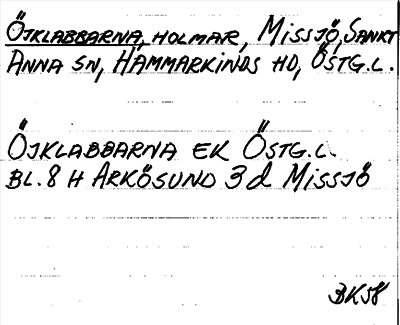 ÖJKLABBARNA, HOLMAR, MISSJÖ, SANKT
ANNA SN, HAMMARKINDS HD, ÖSTG.L.
ÖJKLABBARNA EK ÖSTG.L.
BL. 8 H ARKÖSUND 3 d MISSJÖ
BK58